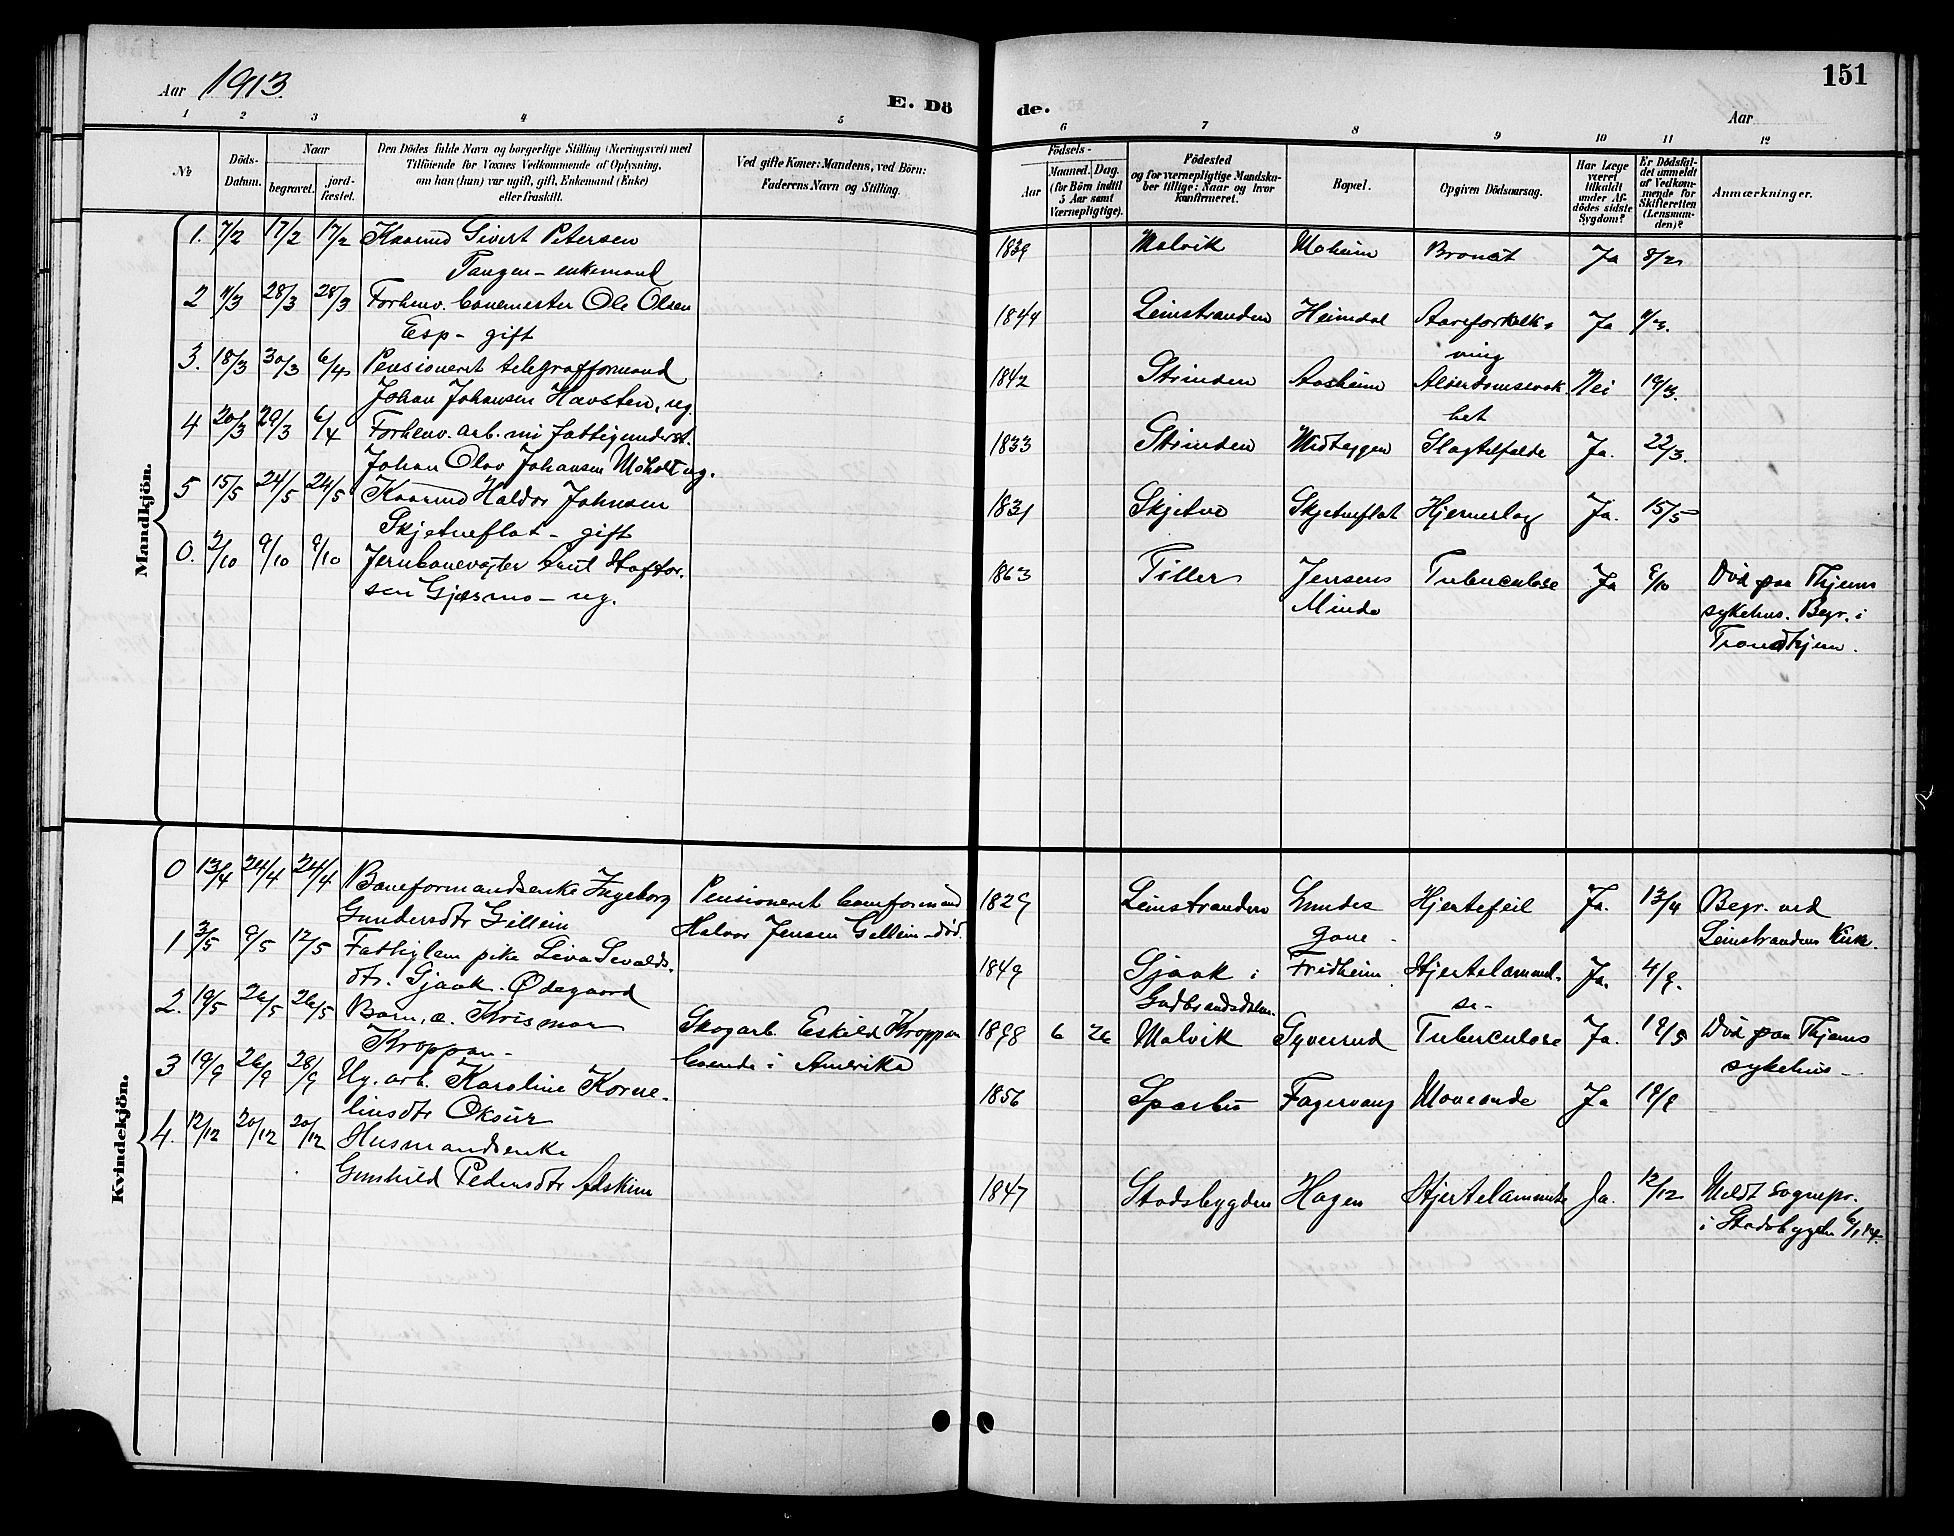 151
Aar 1913
E. Dö de.
Aar
1 2 3 4 5 6 7 8 9 10 11 12
No.
Döds-Datum.
Naar
begravet.
jord-fæstet.
Den Dödes fulde Navn og borgerlige Stilling (Næringsvei) med
Tilföiende for Voxnes Vedkommende af Oplysning,
om han (hun) var ugift, gift, Enkemand (Enke)
eller fraskilt.
Ved gifte Koner: Mandens, ved Börn:
Faderens Navn og Stilling.
Födsels-
Aar
Maaned. Dag.
(for Börn indtil
5 Aar samt
Værnepligtige).
Födested
og for værnepligtige Mandska-
ber tillige: Naar og hvor
konfirmeret.
Bopæl.
Opgiven Dödsaarsag.
Har Læge
været
tilkaldt
under Af-
dödes sidste
Sygdom?
Er Dödsfal-
det anmeldt
af Vedkom-
mende for
Skifteretten
(Lensman-
den)?
Anmærkninger.
Mandkjön.
1. 7/2 17/2 17/2 Kaarmd Sivert Petersen
Tangen - enkemand
1839 Malvik Moheim Ja 8/2
2 28/3 28/3 Forhenv. banemester Ole Olsen
Esp - gift
1844 Leinstranden Heimdal Aareforkalk-
ning Ja
3. 18/3 30/3 6/4 Pensioneret telegrafformand
Johan Johansen Havsten, ug.
1842 Strinden Aasheim Alderdomssvak
het Nei 19/3.
4 20/3 29/3 6/4 Forhenv. arb. nu fattigunderst.
Johan Olav Johansen Moholt ug.
1833 Strinden Midteggen Slagtilfælde Ja. 22/3.
5 15/5 24/5 24/5 Kaarmd Haldor Johnsen
Skjetneflat - gift
1831 Skjetne Skjetneflat Hjerneslag Ja. 15/5
0. 2/10 9/10 9/10 Jernbanevogter
Gjøsmo - ug.
1863 Tiller Jensens
Minde Tuberculose Ja Död paa Thjems
sykehus. Begr. i
Trondhjem.
Kvindekjön.
0 13/4 24/4 24/4 Baneformandsenke Ingeborg
Gundersdtr Gillein
Pensioneret baneformand
Halvor Jensen Gillein - död.
1829 Leinstranden Hjertefeil Ja. 13/4 Begr. ved
Leinstrandens Kirke.
1 3/5 9/5 12/5 Fattiglem pike Liva Sevalds-
dtr. Gjaak. Ødegaard
1849 Sjaak i
Gudbrandsdalen Fridheim Hjertelammel-
se - Ja.
2. 19/5 26/5 26/5 Barn,
Kroppan -
Skogarb. Eskild Kroppan
boende i Amerika
1898 6 26 Malvik Syverud Tuberculose Ja. 19/5 Död paa Thjems
sykehus -
3 19/9 26/9 28/9 Ug. arb. Karoline Korne-
liusdtr Oksur
1856 Sparbu Fagervang Ja
4. 12/12 20/12 20/12 Husmandsenke
Gunhild Pedersdtr Askim
1847 Stadsbygden Hagen Hjertelammelse Ja. 12/12 Meldt sognepr.
i Stadsbygden